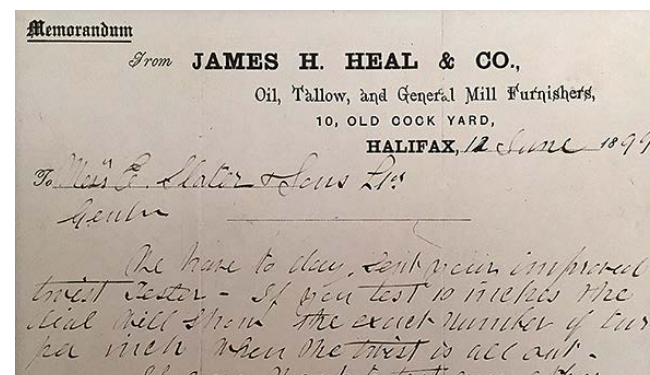 Memorandum
From JAMES H. HEAL & CO.,
Oil, Tallow, and General Mill Furnishers,
10, OLD COCK YARD,
HALIFAX, 12 June 1899
To Mess rs E. Slater & Sons Ld
Gentn
We have to day, sent you improved
twist Tester - If you test 10 inches the
dial will show the exact number of tur
per inch when the twist is all out -